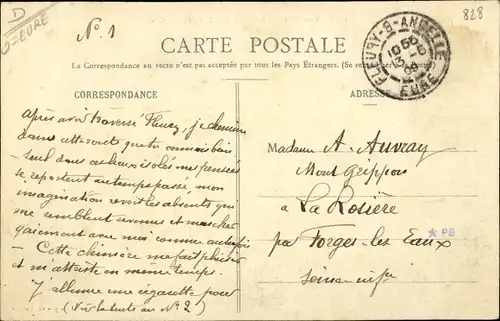 D
27=EURE
N. 1
828
CARTE POSTALE
La Correspondance au recto n'est pas acceptée par tous les Pays Étrangers. (Se
CORRESPONDANCE
ADRESSE
FLEURY-S-ANDELLE
EURE
13 -6
09
Après avoir traversé Fleury, je chemine
dans cette route que tu connais bien
seul dans ces lieux isolés mes pensées
se reportent au temps passé, mon
imagination revoit les absents qui
me semblent avenus et marcher
gaiement avec moi comme autrefois
- Cette chimère me fait plaisir
et m'attriste en même temps.
J'allume une cigarette pour
(Voir la suite au N° 2)
Madame A. Auvray
Mont Grippon
à La Rosière
par Forges-les-Eaux
Seine-infre
PB